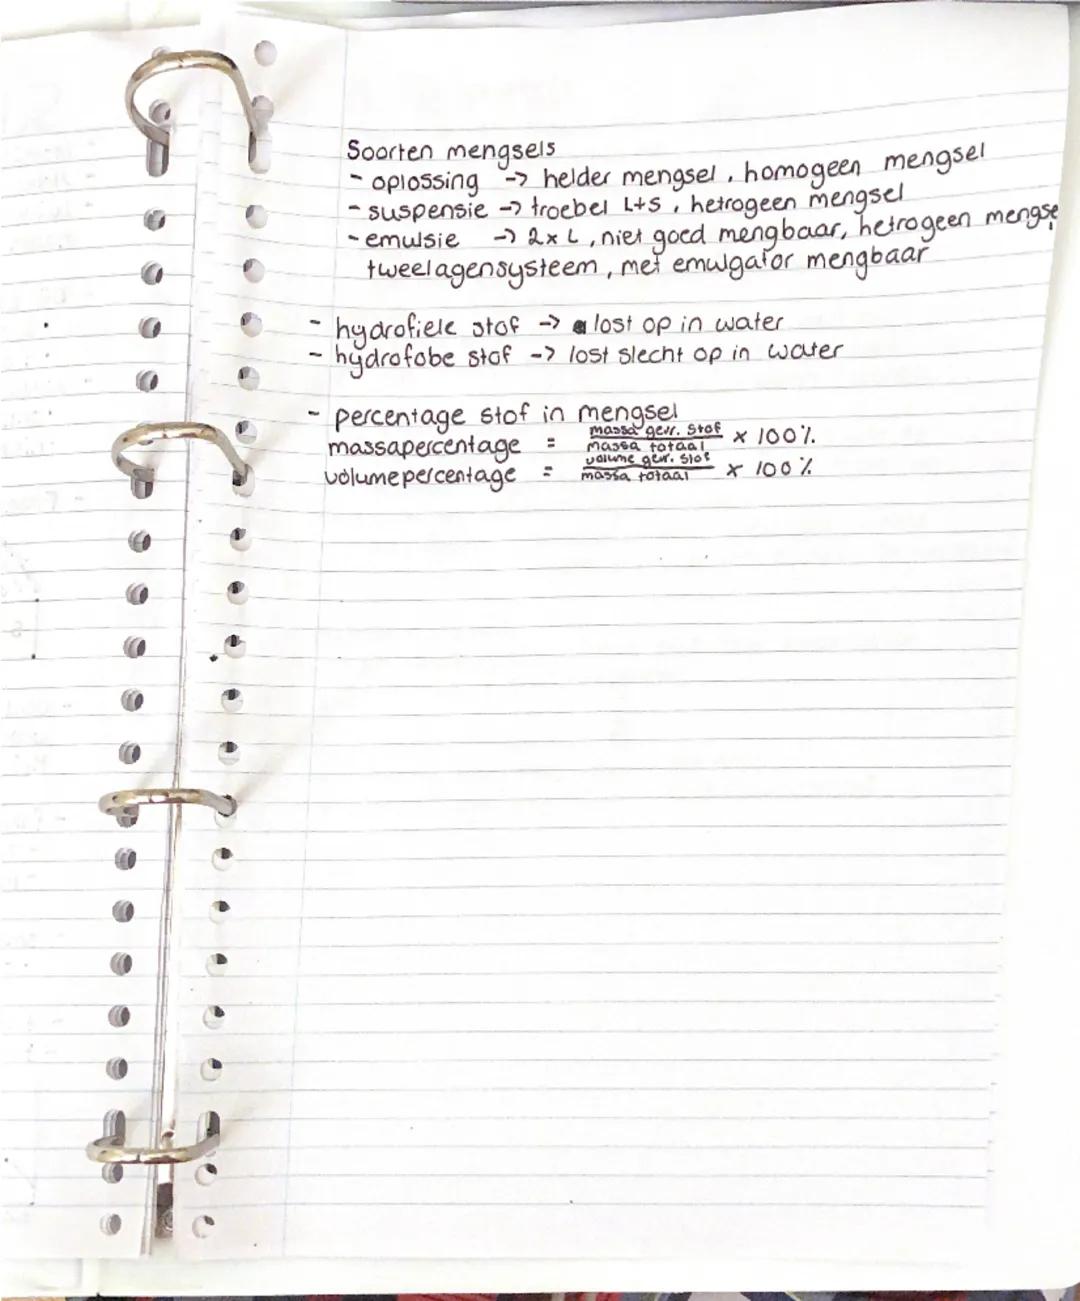 Soorten mengsels
- oplossing -> helder mengsel, homogeen mengsel
- suspensie -> troebel L+S, hetrogeen mengsel
- emulsie -> 2x L, niet goed mengbaar, hetrogeen mengse
tweelagensysteem, met emulgator mengbaar
- hydrofiele stof -> lost op in water
- hydrofobe stof -> lost slecht op in water
- percentage stof in mengsel
massapercentage = massa gevr. stof / massa totaal x 100%
volumepercentage = volume gevr. stof / massa totaal x 100%